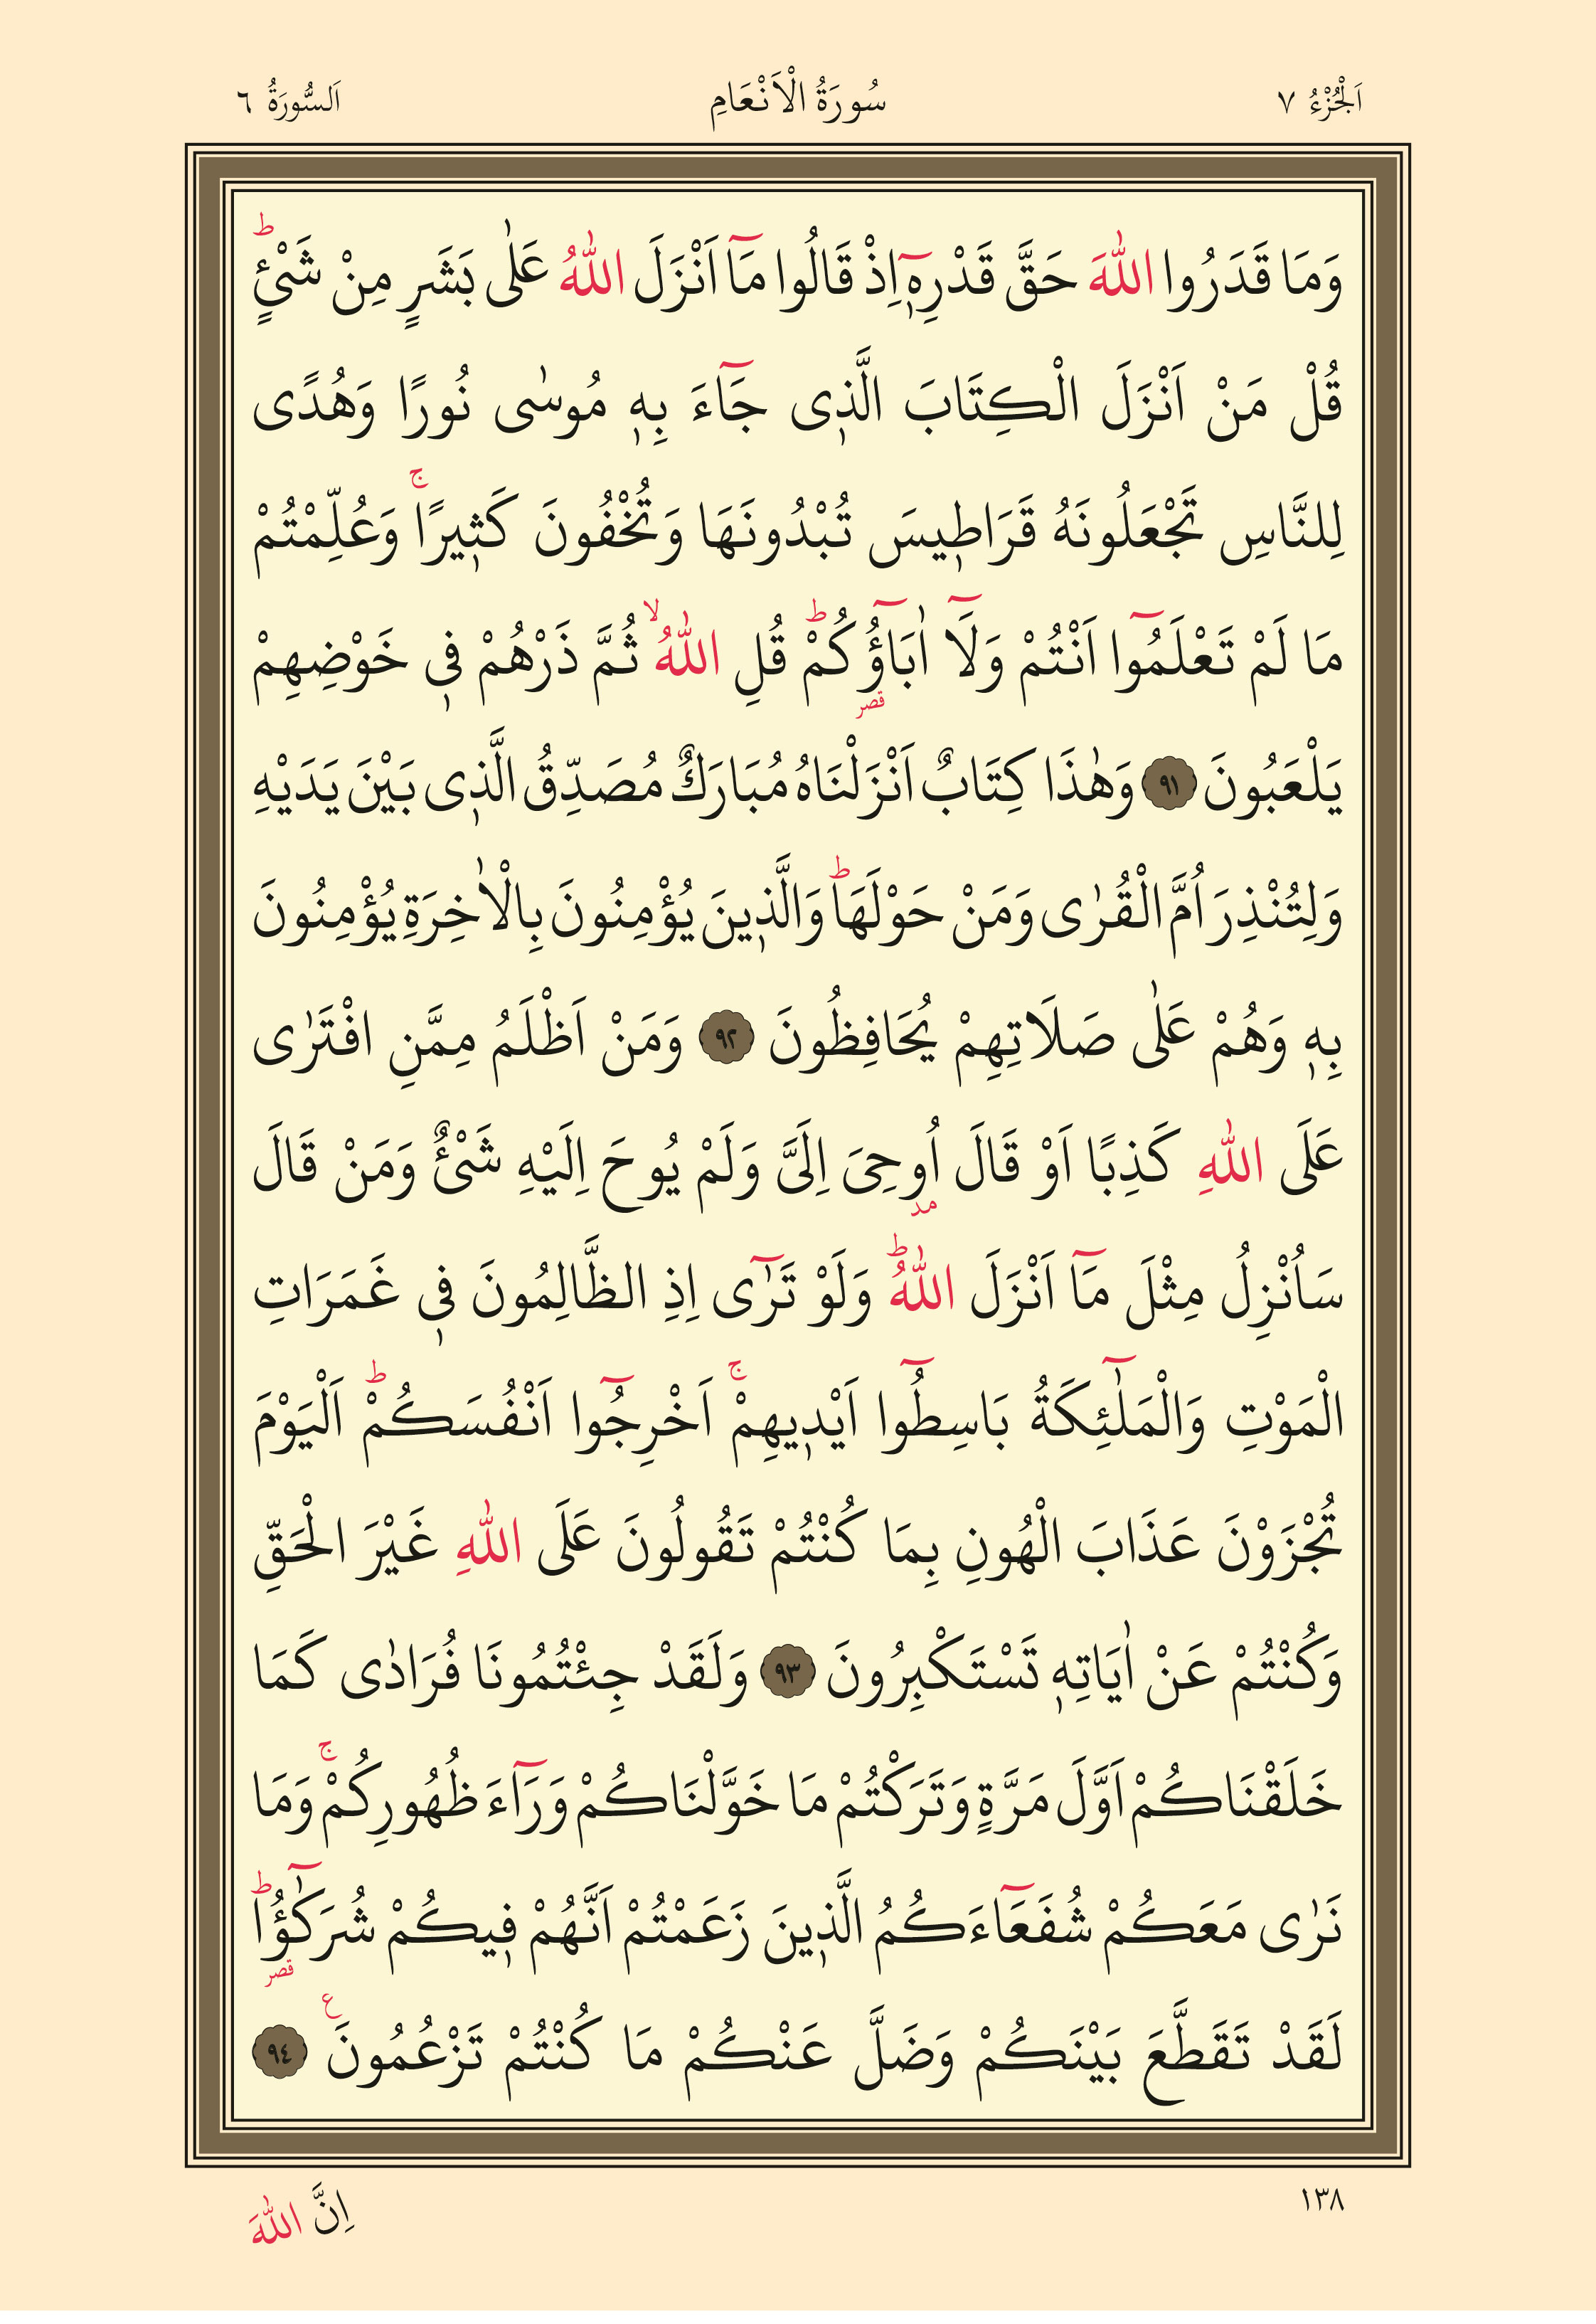 اَلْجُزْءُ ٧ سُورَةُ الْاَنْعَامِ اَلسُّورَةُ ٦
وَمَا قَدَرُوا اللّٰهَ حَقَّ قَدْرِه۪ٓ اِذْ قَالُوا مَٓا اَنْزَلَ اللّٰهُ عَلٰى بَشَرٍ مِنْ شَيْءٍۜ
قُلْ مَنْ اَنْزَلَ الْكِتَابَ الَّذ۪ى جَٓاءَ بِه۪ مُوسٰى نُورًا وَهُدًى
لِلنَّاسِ تَجْعَلُونَهُ قَرَاط۪يسَ تُبْدُونَهَا وَتُخْفُونَ كَث۪يرًاۚ وَعُلِّمْتُمْ
مَا لَمْ تَعْلَمُٓوا اَنْتُمْ وَلَٓا اٰبَٓاؤُ۬كُمْۜ قُلِ اللّٰهُۙ ثُمَّ ذَرْهُمْ ف۪ى خَوْضِهِمْ
قصر
يَلْعَبُونَ ٩١ وَهٰذَا كِتَابٌ اَنْزَلْنَاهُ مُبَارَكٌ مُصَدِّقُ الَّذ۪ى بَيْنَ يَدَيْهِ
وَلِتُنْذِرَ اُمَّ الْقُرٰى وَمَنْ حَوْلَهَاۜ وَالَّذ۪ينَ يُؤْمِنُونَ بِالْاٰخِرَةِ يُؤْمِنُونَ
بِه۪ وَهُمْ عَلٰى صَلَاتِهِمْ يُحَافِظُونَ ٩٢ وَمَنْ اَظْلَمُ مِمَّنِ افْتَرٰى
عَلَى اللّٰهِ كَذِبًا اَوْ قَالَ اُوحِىَ اِلَىَّ وَلَمْ يُوحَ اِلَيْهِ شَيْءٌ وَمَنْ قَالَ
مد
سَاُنْزِلُ مِثْلَ مَٓا اَنْزَلَ اللّٰهُۜ وَلَوْ تَرٰٓى اِذِ الظَّالِمُونَ ف۪ى غَمَرَاتِ
الْمَوْتِ وَالْمَلٰٓئِكَةُ بَاسِطُٓوا اَيْد۪يهِمْۚ اَخْرِجُٓوا اَنْفُسَكُمْۜ اَلْيَوْمَ
تُجْزَوْنَ عَذَابَ الْهُونِ بِمَا كُنْتُمْ تَقُولُونَ عَلَى اللّٰهِ غَيْرَ الْحَقِّ
وَكُنْتُمْ عَنْ اٰيَاتِه۪ تَسْتَكْبِرُونَ ٩٣ وَلَقَدْ جِئْتُمُونَا فُرَادٰى كَمَا
خَلَقْنَاكُمْ اَوَّلَ مَرَّةٍ وَتَرَكْتُمْ مَا خَوَّلْنَاكُمْ وَرَٓاءَ ظُهُورِكُمْۚ وَمَا
نَرٰى مَعَكُمْ شُفَعَٓاءَكُمُ الَّذ۪ينَ زَعَمْتُمْ اَنَّهُمْ ف۪يكُمْ شُرَكٰٓؤُ۬اۜ
قصر
لَقَدْ تَقَطَّعَ بَيْنَكُمْ وَضَلَّ عَنْكُمْ مَا كُنْتُمْ تَزْعُمُونَ ع ٩٤
١٣٨
اِنَّ اللّٰهَ